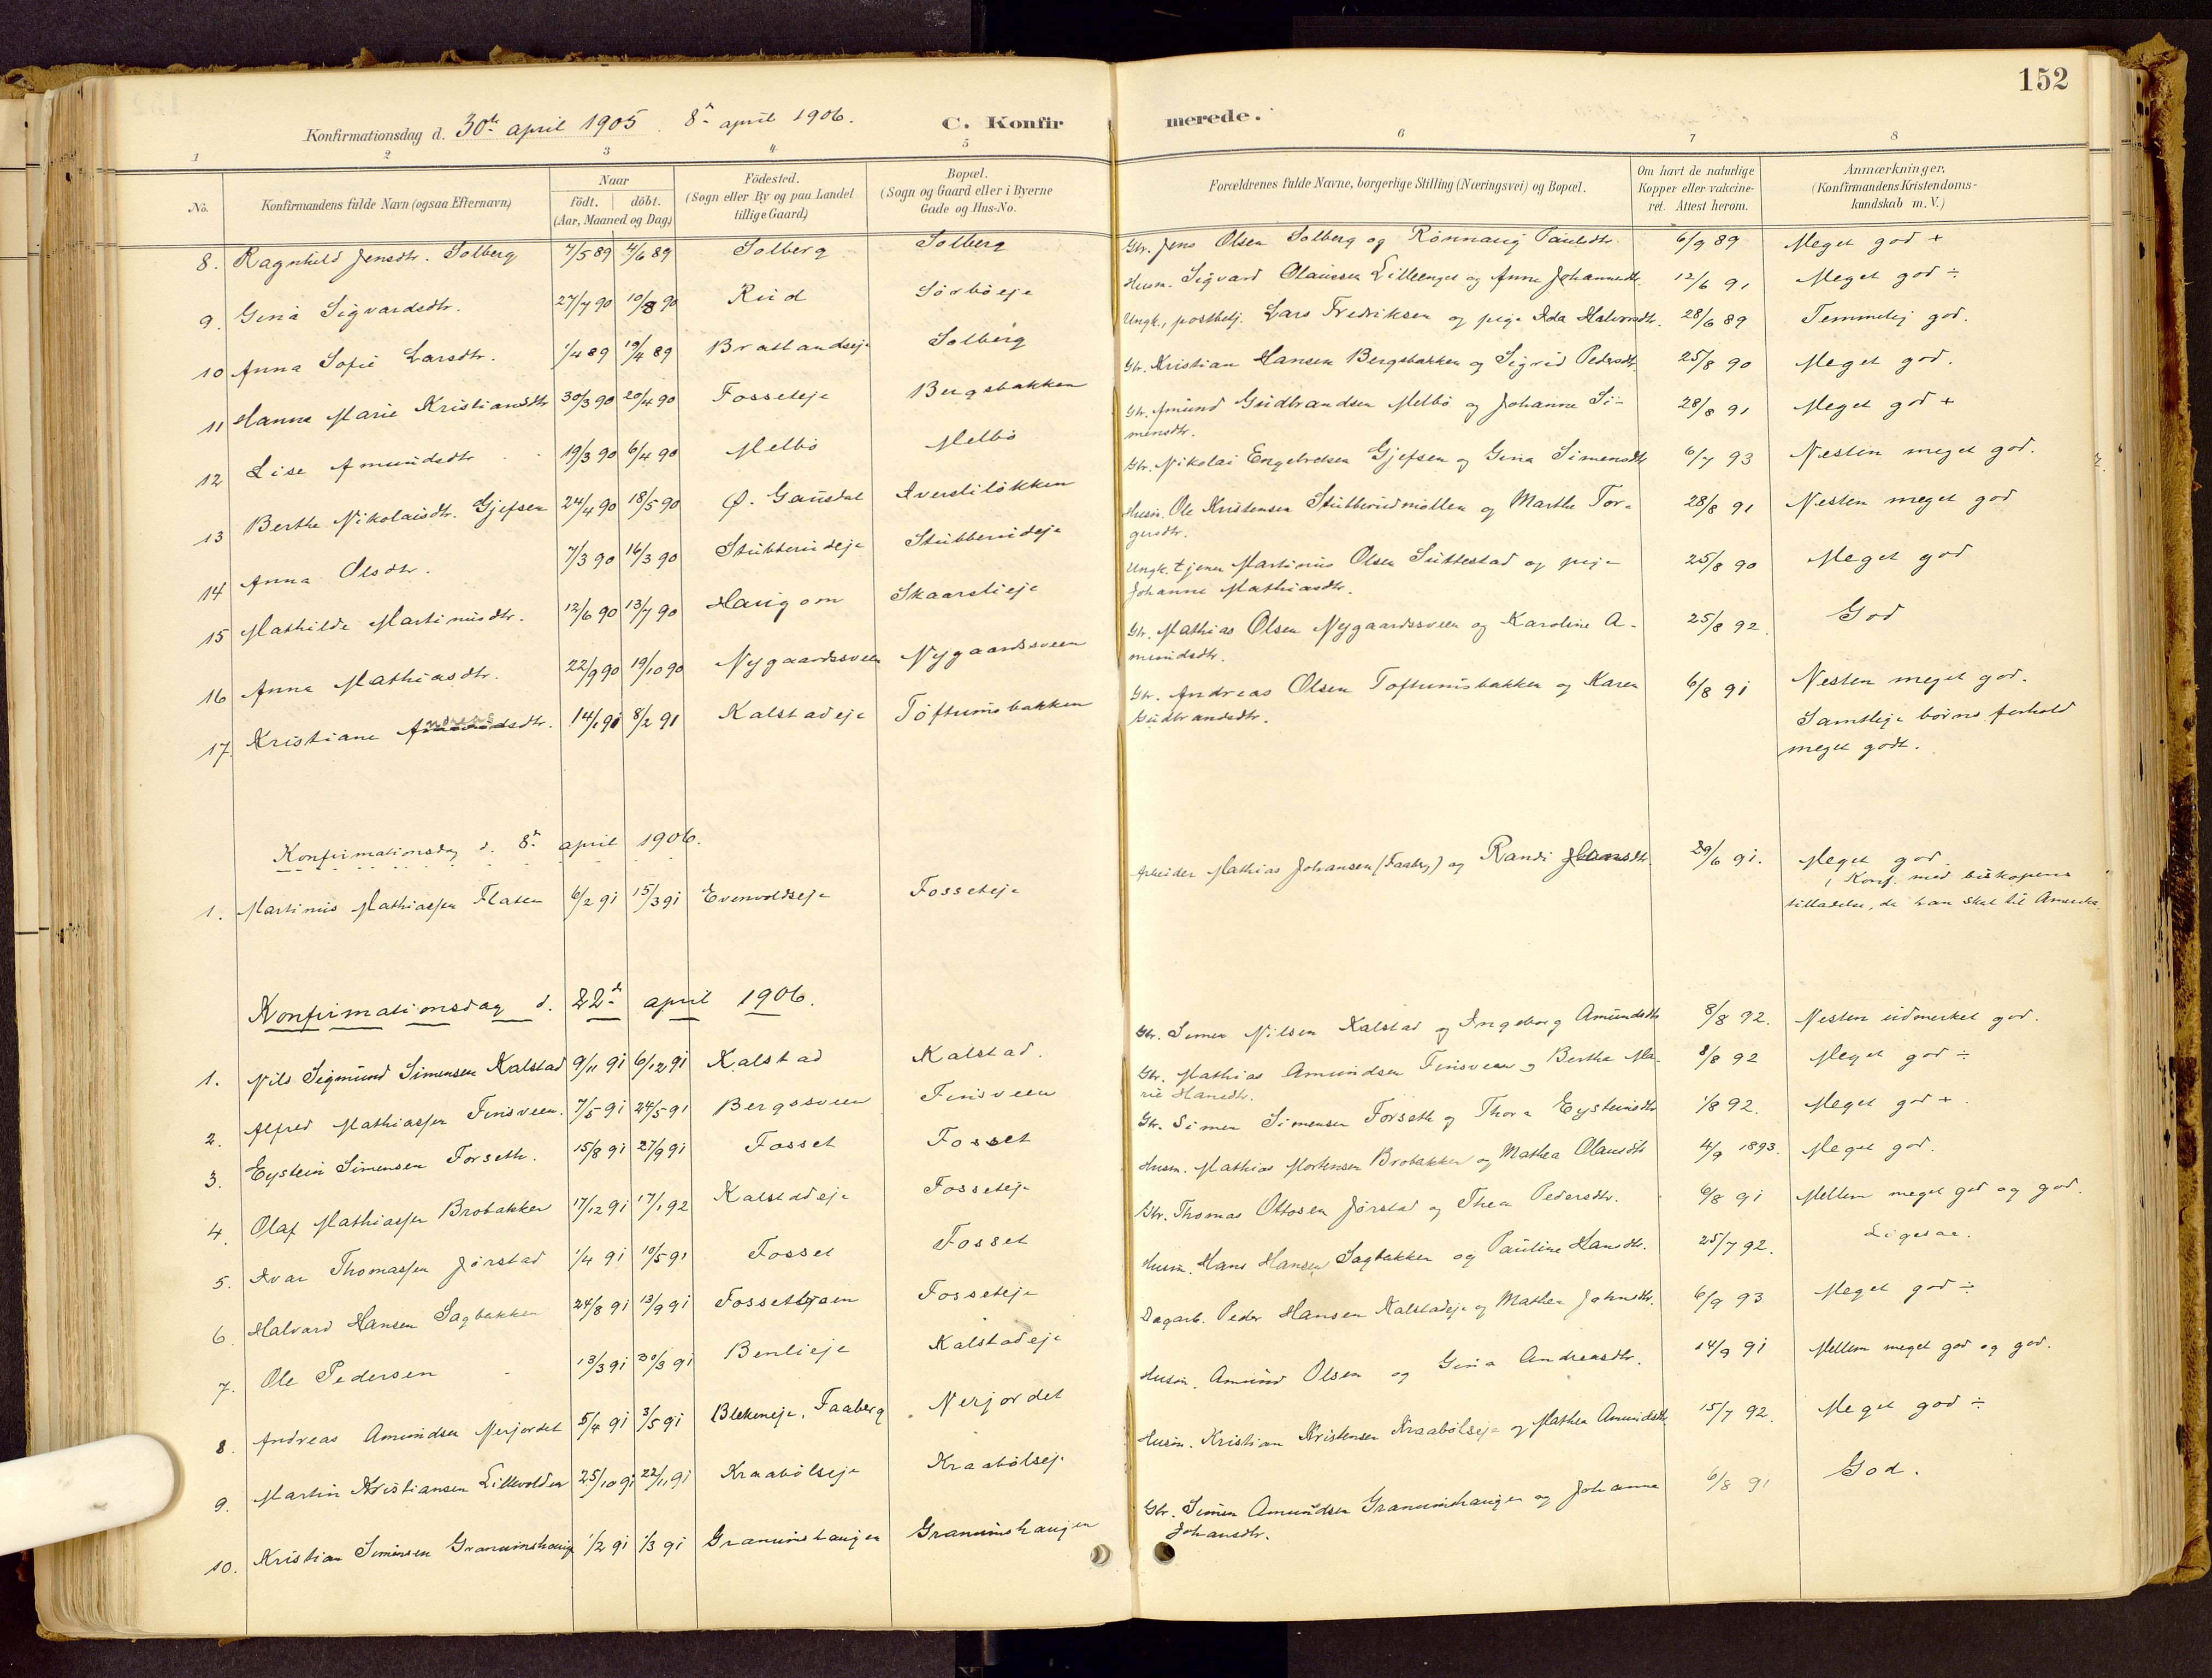 152
Konfirmationsdag d. 30te april 1905. 8de april 1906.
C. Konfirmerede.
1 2 3 4 5 6 7 8
No.
Konfirmandens fulde Navn (ogsaa Efternavn)
Naar
födt. döbt.
(Aar, Maaned og Dag)
Födested.
(Sogn eller By og paa Landet
tillige Gaard)
Bopæl.
(Sogn og Gaard eller i Byerne
Gade og Hus-No.
Forældrenes fulde Navne, borgerlige Stilling (Næringsvei) og Bopæl.
Om havt de naturlige
Kopper eller vakcine-
ret. Attest herom.
Anmærkninger.
(Konfirmandens Kristendoms-
kundskab m. V.)
8. Ragnhild Jensdtr. Solberg 7/5 89 4/6 89 Solberg Solberg Gbr. Jens Olsen Solberg og Rönnaug Paulsdtr. 6/9 89 Meget god +
9. Gina Sigvardsdtr. 27/7 90 10/8 90 Rud Sörböeje Husm. Sigvard Olaussen Lilleenget og Anne Johannesdtr. 12/6 91 Meget god ÷
10 Anna Sofie Larsdtr. 1/4 89 19/4 89 Bratlandseje Solberg Ungk., postbetj. Lars Fredriksen og pige Ida Halvorsdtr. 28/6 89 Temmelig god.
11 Hanna Marie Kristiansdtr 30/3 90 20/4 90 Fosseteje Bergsbakken Gbr. Kristian Hansen Bergsbakken og Sigrid Pedersdtr. 25/8 90 Meget god.
12 Lise Amundsdtr 19/3 90 6/4 90 Melbö Melbö Gbr. Amund Gudbrandsen Melbö og Johanne Si-
mensdtr. 28/8 91 Meget god +
13 Berthe Nikolaisdtr. Gjefsen 24/4 90 18/5 90 Ø. Gausdal Averstilökken Gbr. Nikolai Engebretsen Gjefsen og Gina Simensdtr 6/7 93 Nesten meget god.
14 Anna Olsdtr. 7/3 90 16/3 90 Stubberudeje Stubberudeje Husm. Ole Kristensen Stubberudmöllen og Marthe Tor-
gersdtr. 28/8 91 Nesten meget god
15 Mathilde Martinusdtr. 12/6 90 13/7 90 Haugom Skaarslieje Ungk. tjener Martinus Olsen Suttestad og pige
Johanne Mathiasdtr. 25/8 90 Meget god
16 Anna Mathiasdtr. 22/9 90 19/10 90 Nygaardssveen Nygaardssveen Gbr. Mathias Olsen Nygaardssveen og Karoline A-
mundsdtr. 25/8 92. God
17. Kristiane Andreasdtr. 14/1 91 8/2 91 Kalstadeje Toftumsbakken Gbr. Andreas Olsen Toftumsbakken og Karen
Gudbrandsdtr. 6/8 91 Nesten meget god.
Samtlige börns forhold
meget godt.
Konfirmationsdag d. 8de april 1906.
1. Martinus Mathiassen Flaten 6/2 91 15/3 91 Evenvoldseje Fosseteje Arbeider Mathias Johansen (Faaberg) og Randi Hansdtr. 29/6 91. Meget god.
Konf. med biskopens
tilladelse, da han skal til Amerika
Konfirmationsdag d. 22de april 1906.
1. Nils Sigmund Simensen Kalstad 9/11 91 6/12 91 Kalstad Kalstad. Gbr. Simen Nilsen Kalstad og Ingeborg Amundsdtr 8/8 92. Nesten udmerket god.
2. Alfred Mathiassen Finsveen. 7/5 91 24/5 91 Bergssveen Finsveen Gbr. Mathias Amundsen Finsveen og Berthe Ma-
rie Hansdtr. 8/8 92 Meget god ÷
3. Eystein Simensen Forseth. 15/8 91 27/9 91 Fosset Fosset Gbr. Simen Simensen Forseth og Thora Eysteinsdtr 1/8 92. Meget god +.
4. Olaf Mathiassen Brobakken 17/12 91 17/1 92 Kalstadeje Fosseteje Husm. Mathias Mortensen Brobakken og Mathea Olausdtr 4/9 1893. Meget god.
5. Ivar Thomassen Jörstad 1/4 91 10/5 91 Fosset Fosset Gbr. Thomas Ottosen Jörstad og Thea Pedersdtr. 6/8 91 Mellem meget god og god.
6. Halvard Hansen Sagbakken 24/8 91 13/9 91 Fosseteje Husm. Hans Hansen Sagbakken og Pauline Hansdtr. 25/7 92. Ligesaa.
7. Ole Pedersen 13/3 91 30/3 91 Benlieje Kalstadeje Dagarb. Peder Hansen Kalstadeje og Mathea Johnsdtr. 6/9 93 Meget god ÷
8. Andreas Amundsen Nerjordet 5/4 91 3/5 91 Faaberg Nerjordet Husm. Amund Olsen og Gina Andreasdtr. 14/9 91 Mellem meget god og god.
9. Martin Kristiansen Lillevolden 25/10 91 22/11 91 Kraabölseje Kraabölseje Husm. Kristian Kristensen Kraabölseje og Mathea Amundsdtr 15/7 92. Meget god ÷
10. Kristian Simensen Granumshaugen 1/2 91 1/3 91 Granumshaugen Granumshaugen Gbr. Simen Amundsen Granumshaugen og Johanne
Johansdtr. 6/8 91 God.